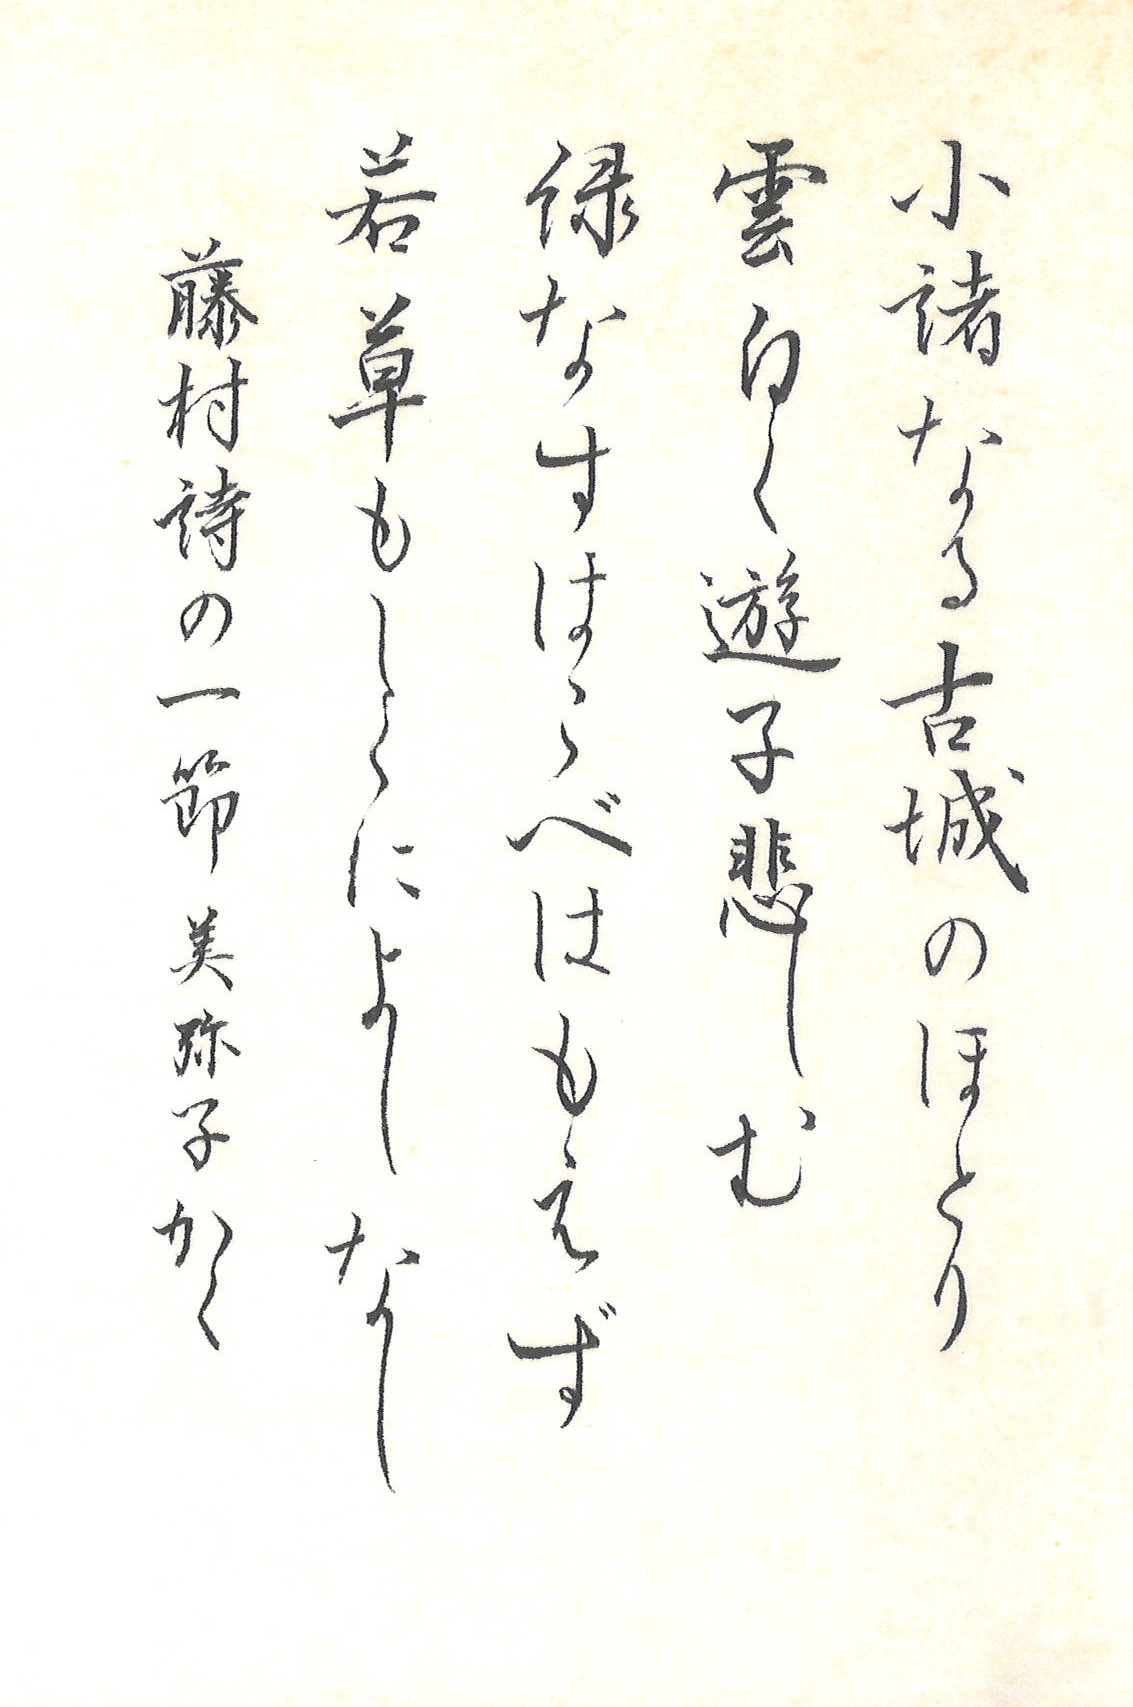 小諸なる古城のほとり
雲白く遊子悲しむ
緑なすはこべはもえず
若草もしくによしなし
藤村詩の一節 美弥子かく